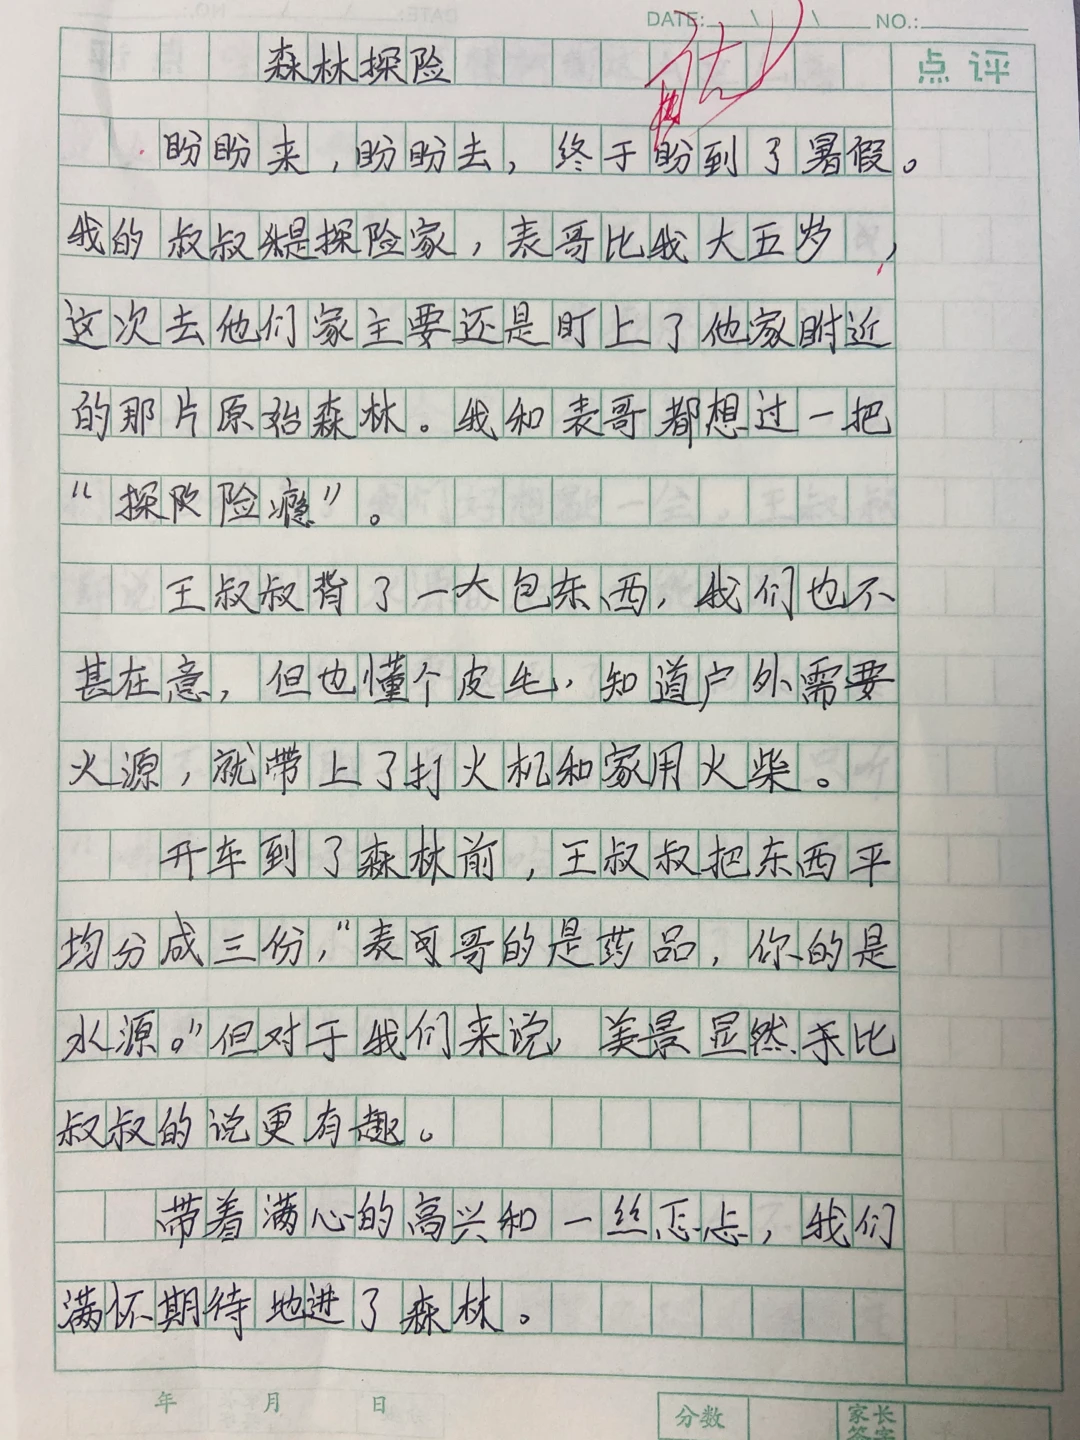 DATE: \ \ NO.:
森林探险
点评
盼盼来，盼盼去，终于盼到了暑假。
我的叔叔是探险家，表哥比我大五岁，
这次去他们家主要还是盯上了他家附近
的那片原始森林。我和表哥都想过一把
“探险瘾”。
王叔叔背了一大包东西，我们也不
甚在意，但也懂个皮毛，知道户外需要
火源，就带上了打火机和家用火柴。
开车到了森林前，王叔叔把东西平
均分成三份，“表哥的是药品，你的是
水源。”但对于我们来说，美景显然比
叔叔的说更有趣。
带着满心的高兴和一丝忐忑，我们
满怀期待地进了森林。
年 月 日
分数 家长签字